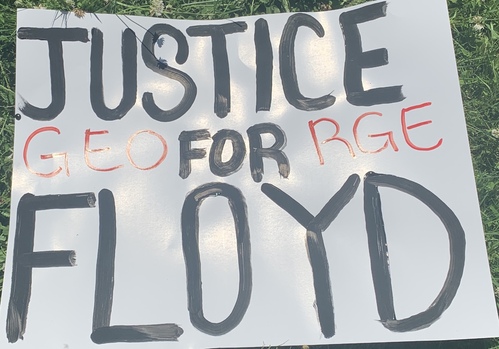 JUSTICE
GEO FOR RGE
FLOYD